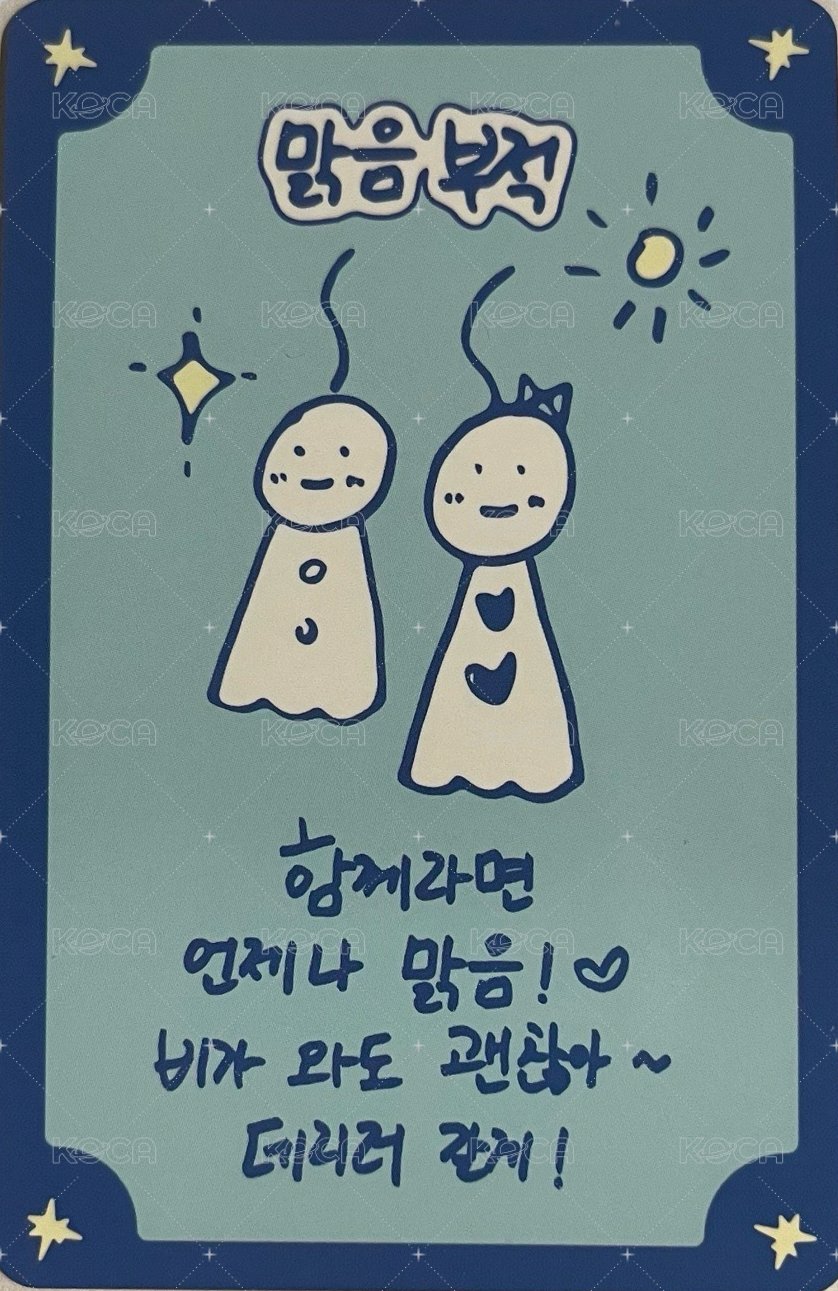 맑음 부적
함께라면
언제나 맑음! ♡
비가 와도 괜찮아 ~
데리러 갈게!